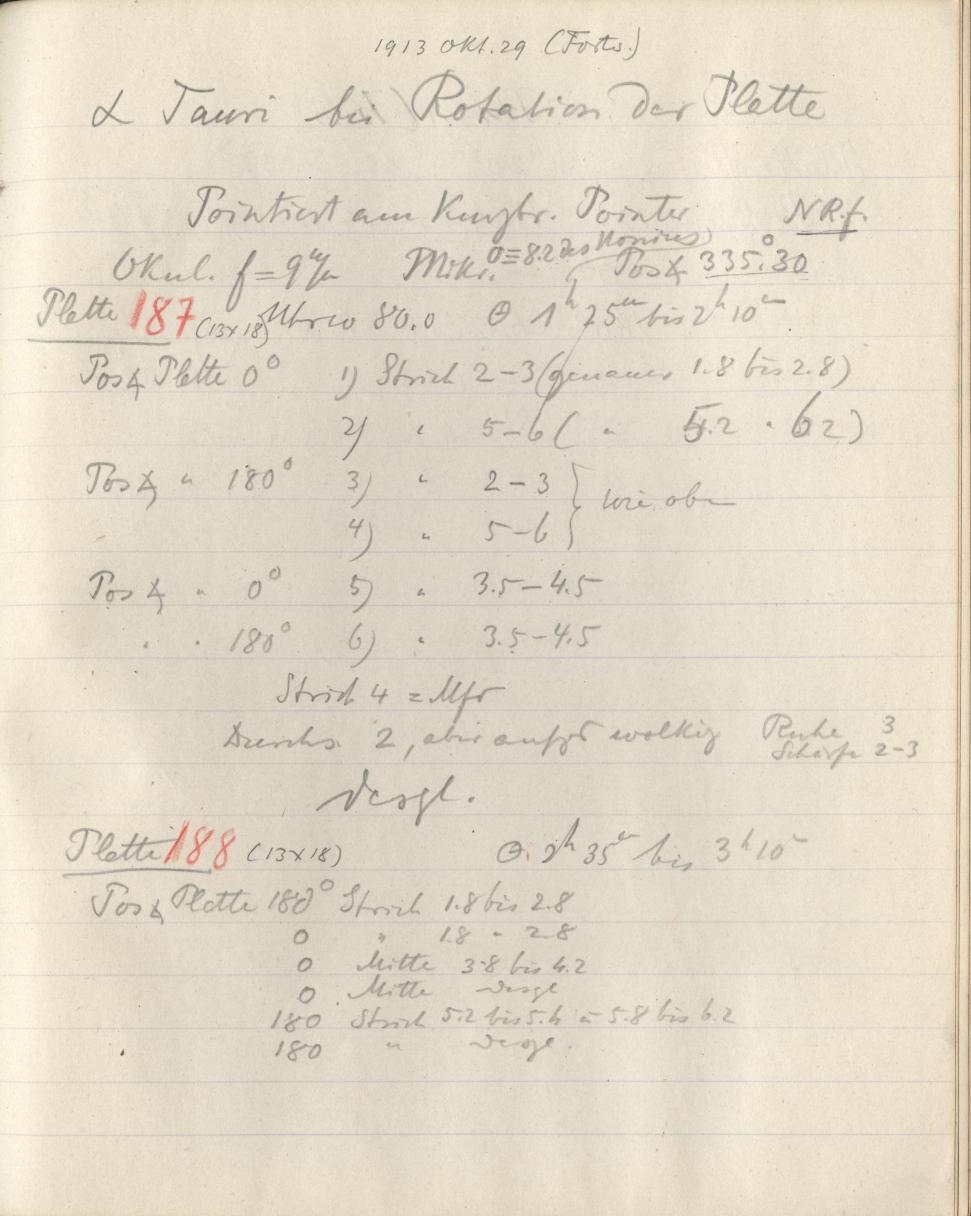 1913 Okt. 29 (Forts.)
α Tauri bei Rotation der Platte
Pointiert am Pointer NRf.
0 = 8.2 des Nonius
Okul. f = 9 m/m Mikr. Pos∡ 335.°30
Platte 187 (13x18) 80.0 Θ 1h 25m bis 2h 10m
Pos∡ Platte 0° 1) Strich 2–3 (genauer 1.8 bis 2.8)
2) " 5–6 ( " 5.2 " 6.2)
Pos∡ " 180° 3) " 2–3 } wie oben
4) " 5–6
Pos∡ " 0° 5) " 3.5–4.5
" " 180° 6) " 3.5–4.5
Strich 4 = Mitte
Durchs. 2, aber wolkig Ruhe 3
Schärfe 2–3
desgl.
Platte 188 (13x18) Θ 2h 35m bis 3h 10m
Pos∡ Platte 180° Strich 1.8 bis 2.8
0 " 1.8 " 2.8
0 Mitte 3.8 bis 4.2
0 Mitte desgl
180 Strich 5.2 bis 5.4 u 5.8 bis 6.2
180 " desgl.